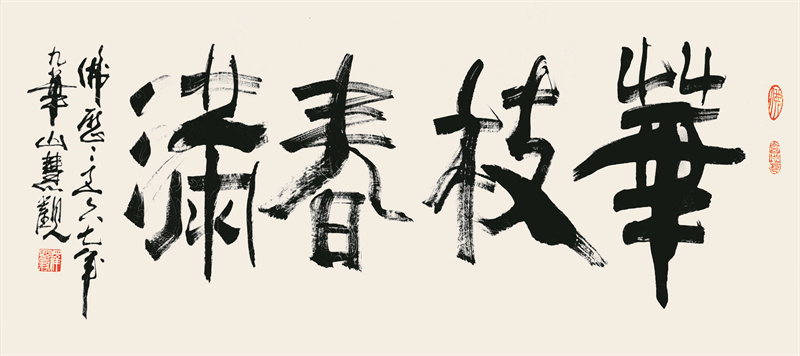 華枝春滿
佛歷二五六七年
九華山慧觀